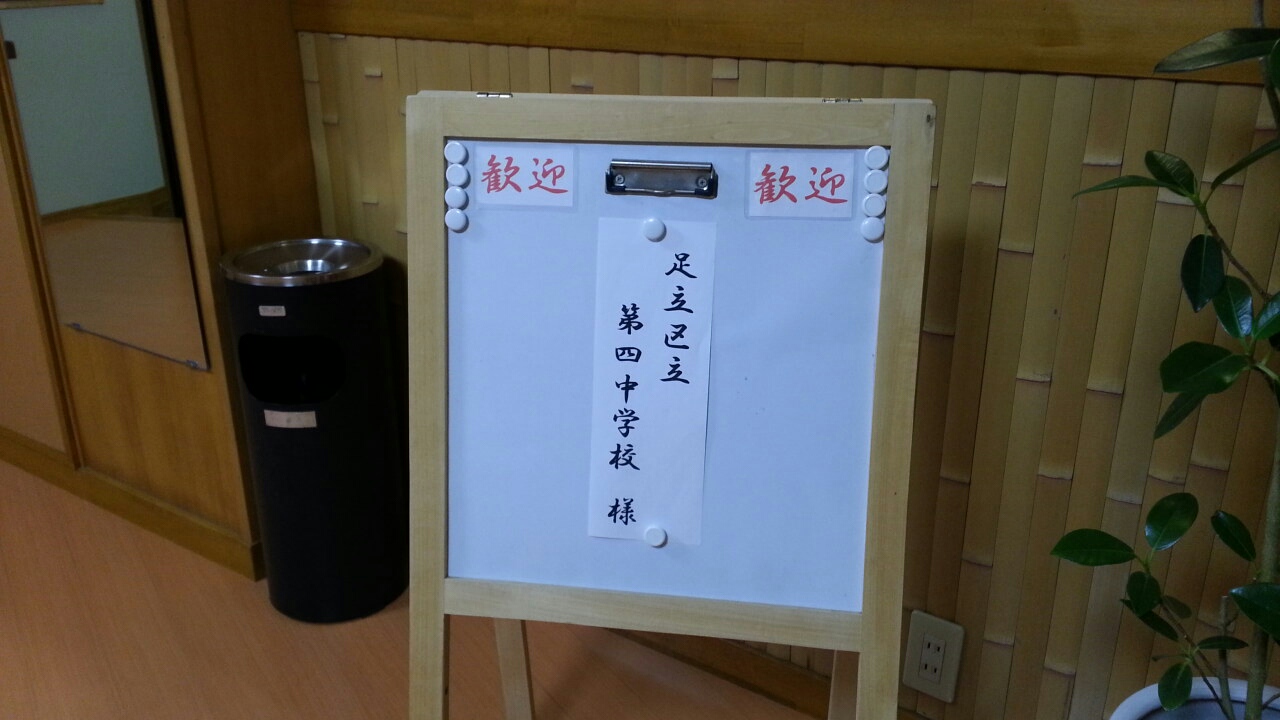 歓迎
歓迎
足立区立
第四中学校 様